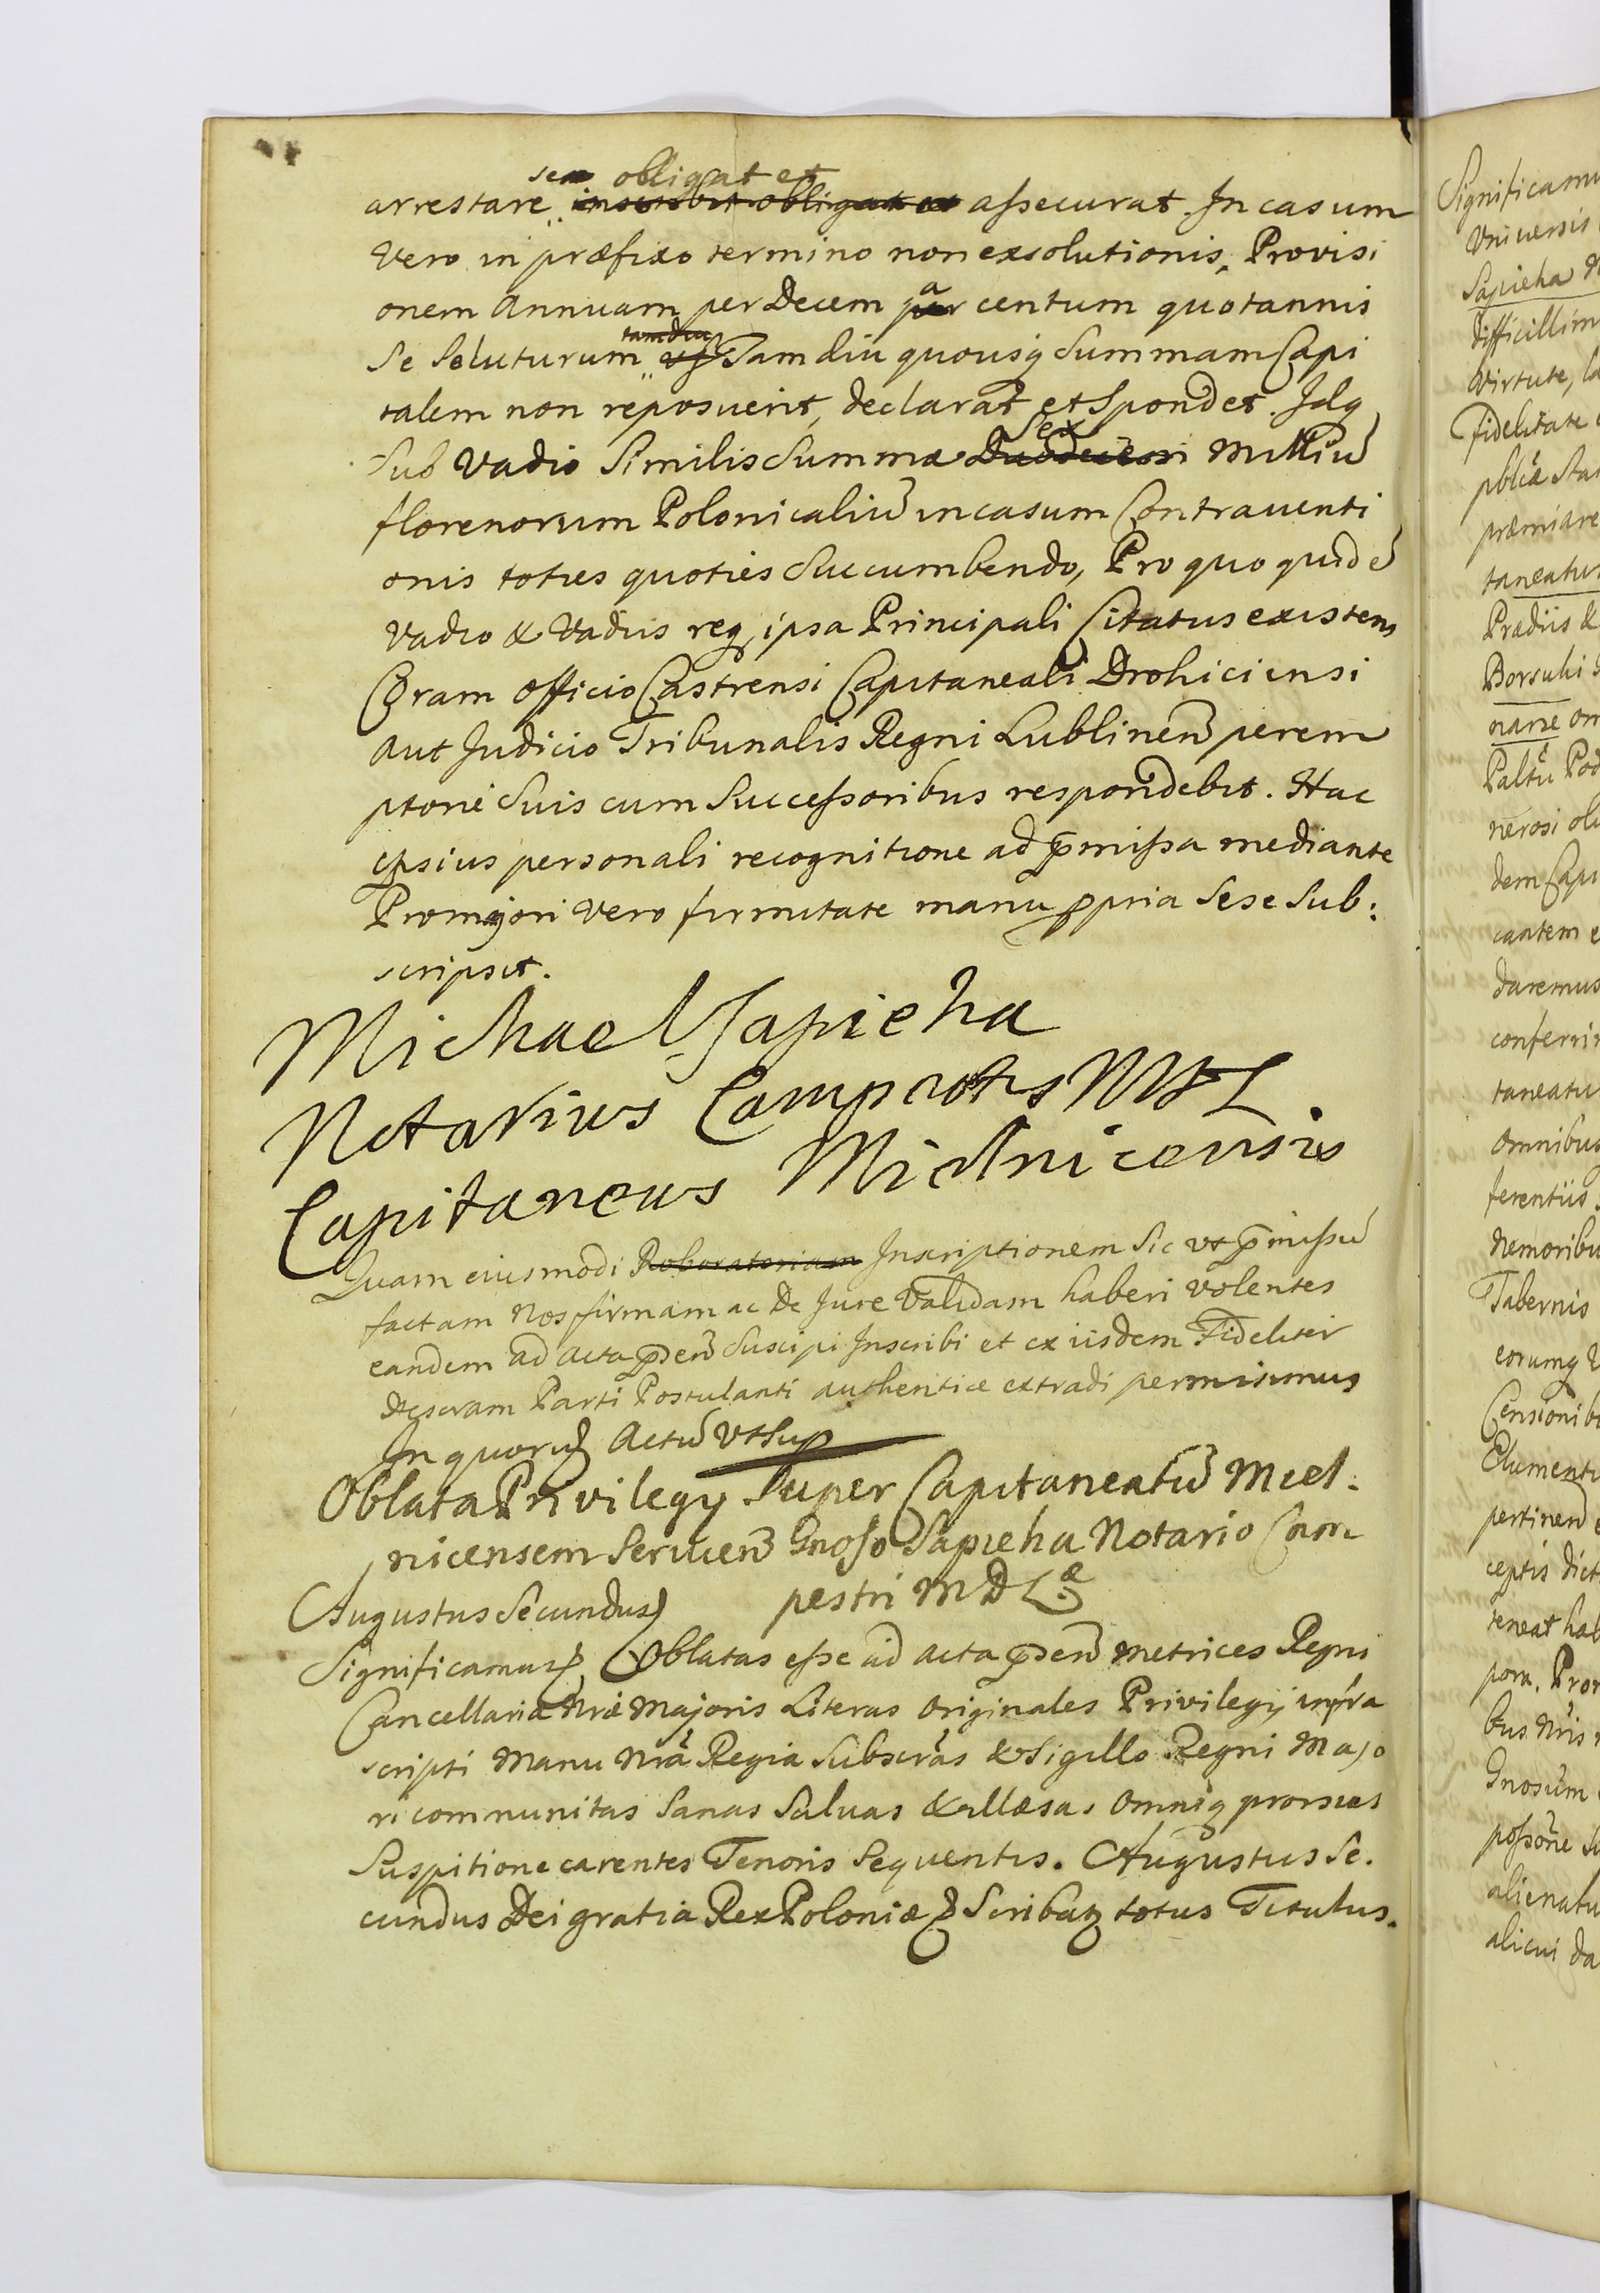 sese obligat et
arrestare inscribit obligat et assecurat. In casum
Vero in præfixo termino non exsolutionis, Provisi
onem Annuam per Decem a per centum quotannis
Se Soluturum tamdiu Tam diu quousq Summam Capi
talem non reposuerit, declarat et Spondet. Idq
Sub Vadio Similis Summæ Sex Duodecem Milliũ
florenorum Polonicaliũ in casum Contrauenti
onis toties quoties Succumbendo, Pro quo quidẽ
Vadio & Vadiis req, ipsa Principali Citatus existens
Coram Officio Castrensi Capitaneali Drohiciensi
aut Judicio Tribunalis Regni Lublinen̄ perem
ptorie Suis cum Successoribus respondebit. Hac
ipsius personali recognitione ad p̄missa mediante
Pro majori Vero firmitate manu ppria Sese Sub:
scripsit.
Michael Sapieha
Notarius Campestris MDL.
Capitaneus Mielnicensis
Quam eiusmodi Roboratoriam Inscriptionem Sic vt p̄missũ
factam Nos firmam ac De Jure Validam haberi Volentes
eandem ad Acta p̄sen̄ Suscipi Inscribi et ex iisdem Fideliter
descram Parti Postulanti authentice extradi permisimus
In quorũ Actũ vt sup
Oblata Privilegij Super Capitaneatũ Miel:
nicensem Seruien̄ Gnoso Sapieha Notario Cam
pestri M D Læ
Augustus Secundus
Significamus Oblatas esse ad Acta p̄sen̄ Metrices Regni
Cancellariæ Nræ Majoris Literas Originales Privilegij infra
scripti Manu Nrã Regia Subscras & Sigillo Regni Majo
ri communitas Sanas Saluas & illæsas Omniq prorsus
Suspitione carentes Tenoris Sequentis. Augustus Se.
cundus Dei gratia Rex Poloniæ Scribatz totus Titulus.
Significamu
Vniuersis
Sapieha
difficillim
Virtute, la
Fidelitate
pblcã Sta
præmiare
taneatu
Prædiis &
Borsuki
narie om
Paltũ Pod
nerosi ol
dem Capi
cantem e
daremus
conferri
taneatu
Omnibus
ferentiis
Nemoribu
Tabernis
eorumq
Censionib
Elumenti
pertinen̄ e
ceptis dict
teneat hab
pora. Pro
bus Nris
Gnosum
possone
alienatu
alicui da